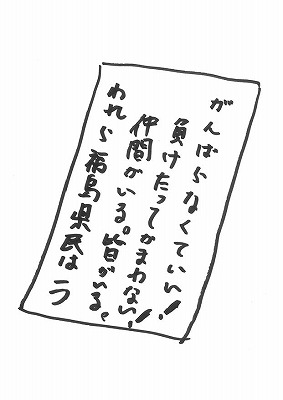 がんばらなくていい!
負けたってかまわない!
仲間がいる。皆がいる。
われら福島県民は ラ